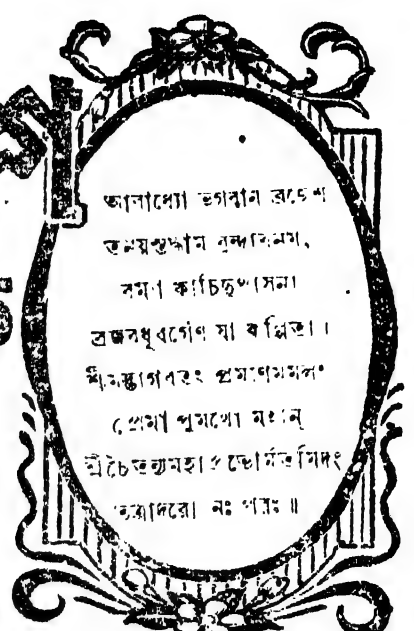 আরাধ্যো ভগবান ব্রজেশ
তনয়স্তদ্ধাম বৃন্দাবনম,
রম্যা কাচিদুপাসনা
ব্রজবধূবর্গেণ যা কল্পিতা।
শ্রীমদ্ভাগবতং প্রমাণমমলং
প্রেমা পুমর্থো মহান্
শ্রীচৈতন্যমহাপ্রভোর্মতমিদং
তত্রাদরো নঃ পরঃ॥